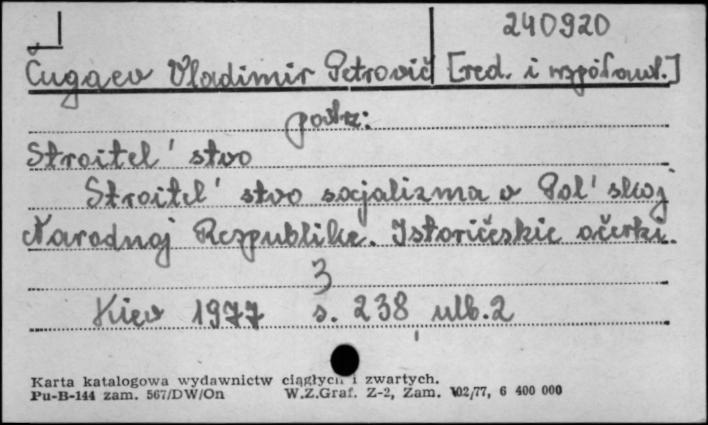 240920
Čugaev Vladimir Petrovič [red. i współaut.]
patrz:
Stroitel' stvo
Stroitel' stvo socjalizma v Pol' skoj
Narodnoj Respublike. Istoričeskie očerki.
3
Kiev 1977 s. 238 ulb. 2
Karta katalogowa wydawnictw ciągłych i zwartych.
Pu-B-144 zam. 567/DW/On W.Z.Graf. Z-2, Zam. 102/77, 6 400 000